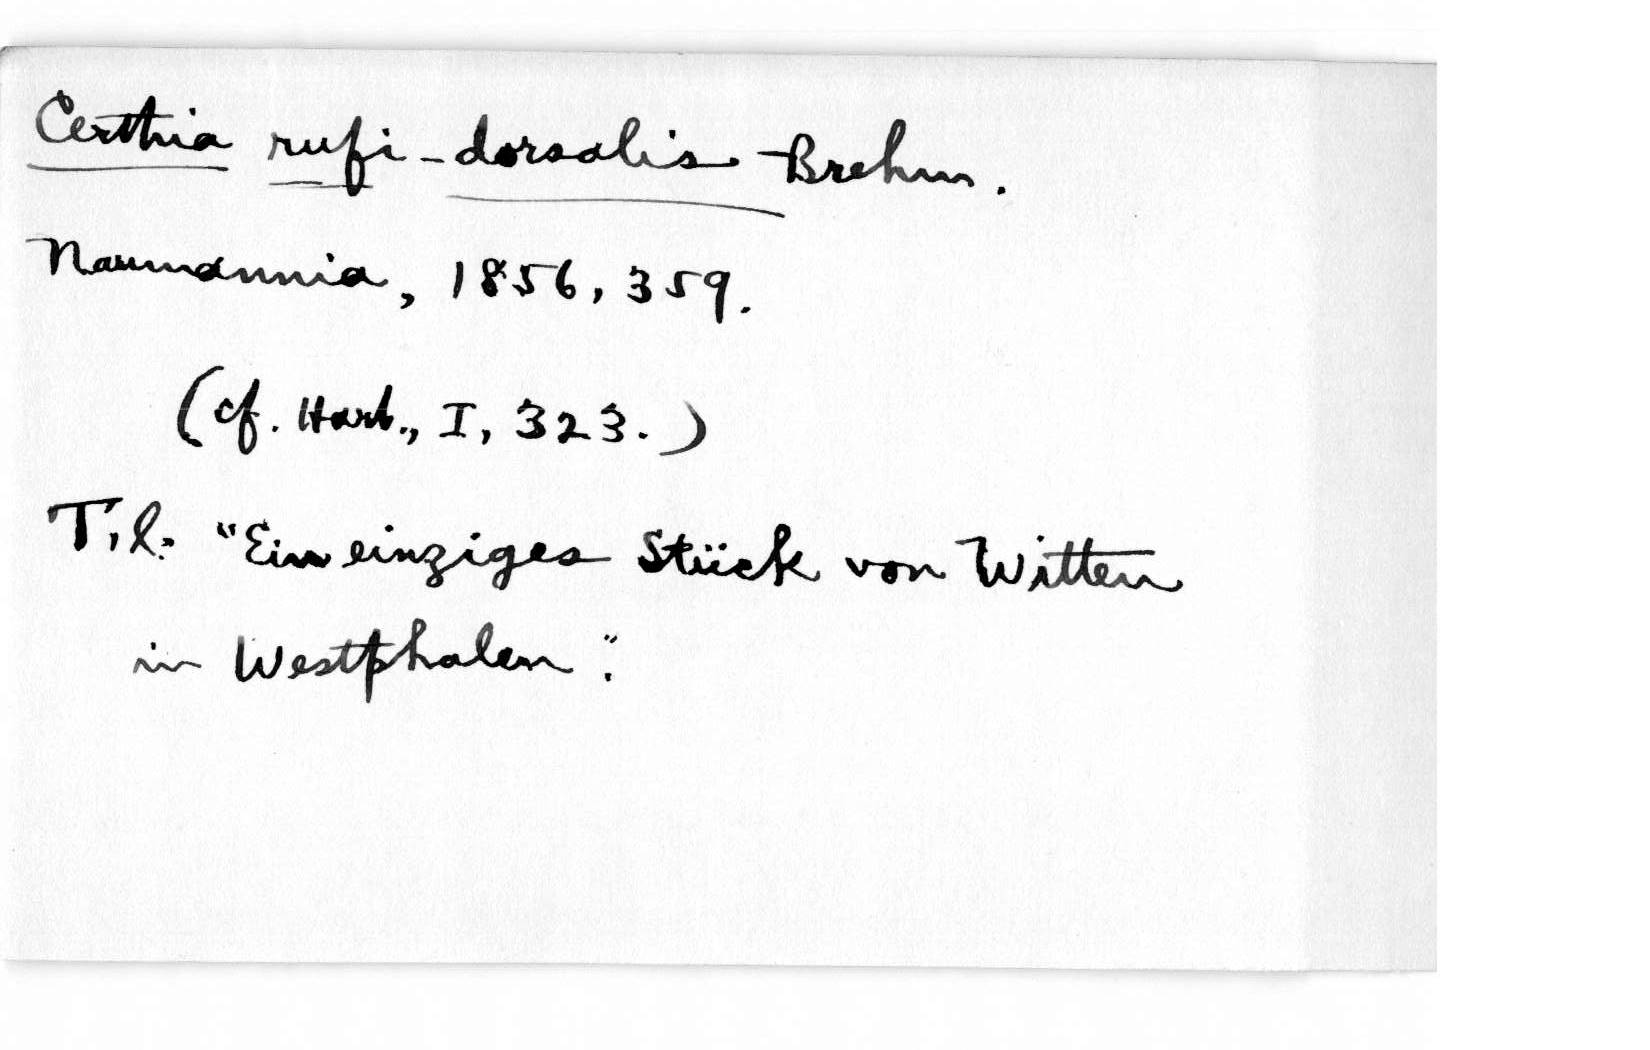 Certhia rufi-dorsalis Brehm.
Naumannia, 1856, 359.
(cf. Hart., I, 323.)
T.l. "Ein einziges Stück von Witten
in Westphalen".